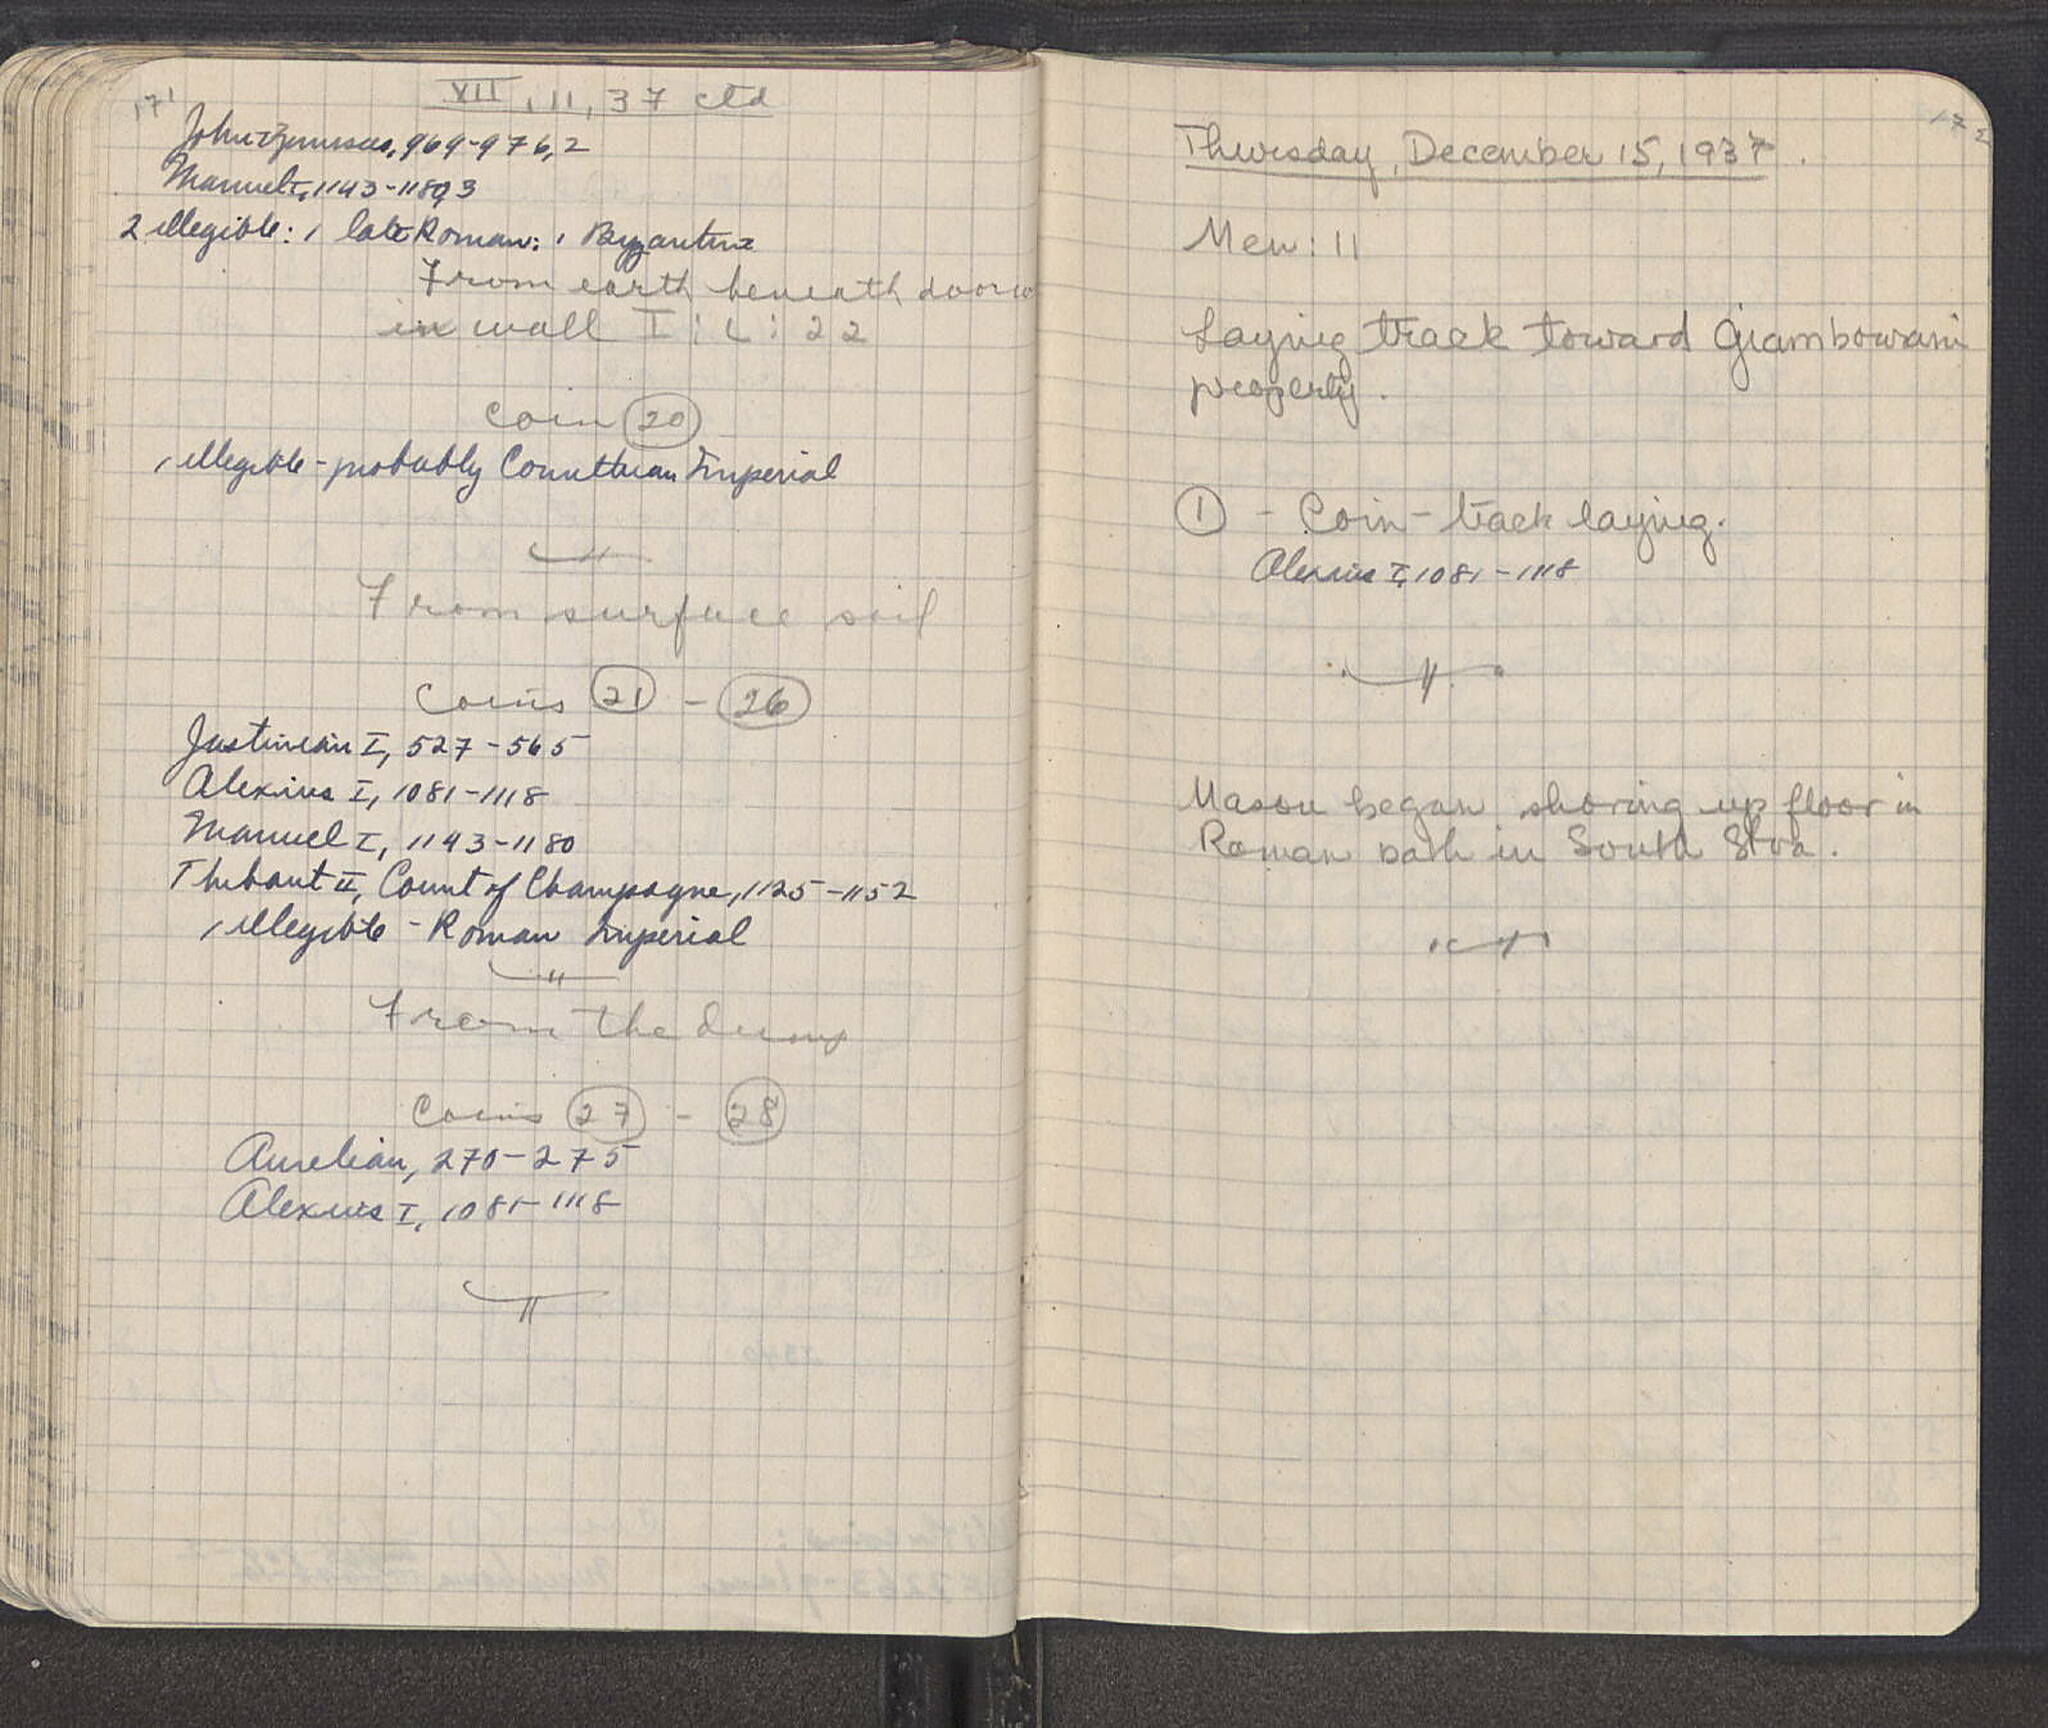 171
VII, 11, 37 ctd
John Zimisces, 969-976, 2
Manuel I, 1143-1180, 3
2 illegible: 1 late Roman: 1 Byzantine
From earth beneath door
in wall I : L : 22
Coin 20
1 illegible - probably Corinthian Imperial
From surface soil
Coins 21 - 26
Justinian I, 527-565
Alexius I, 1081-1118
Manuel I, 1143-1180
Thibaut II, Count of Champagne, 1125-1152
1 illegible - Roman Imperial
From the dump
Coins 27 - 28
Aurelian, 270-275
Alexius I, 1081-1118
172
Thursday, December 15, 1937.
Men: 11
Laying track toward Giambowrani
property.
1 - Coin - track laying.
Alexius I, 1081-1118
Mason began shoring up floor in
Roman bath in South Stoa.